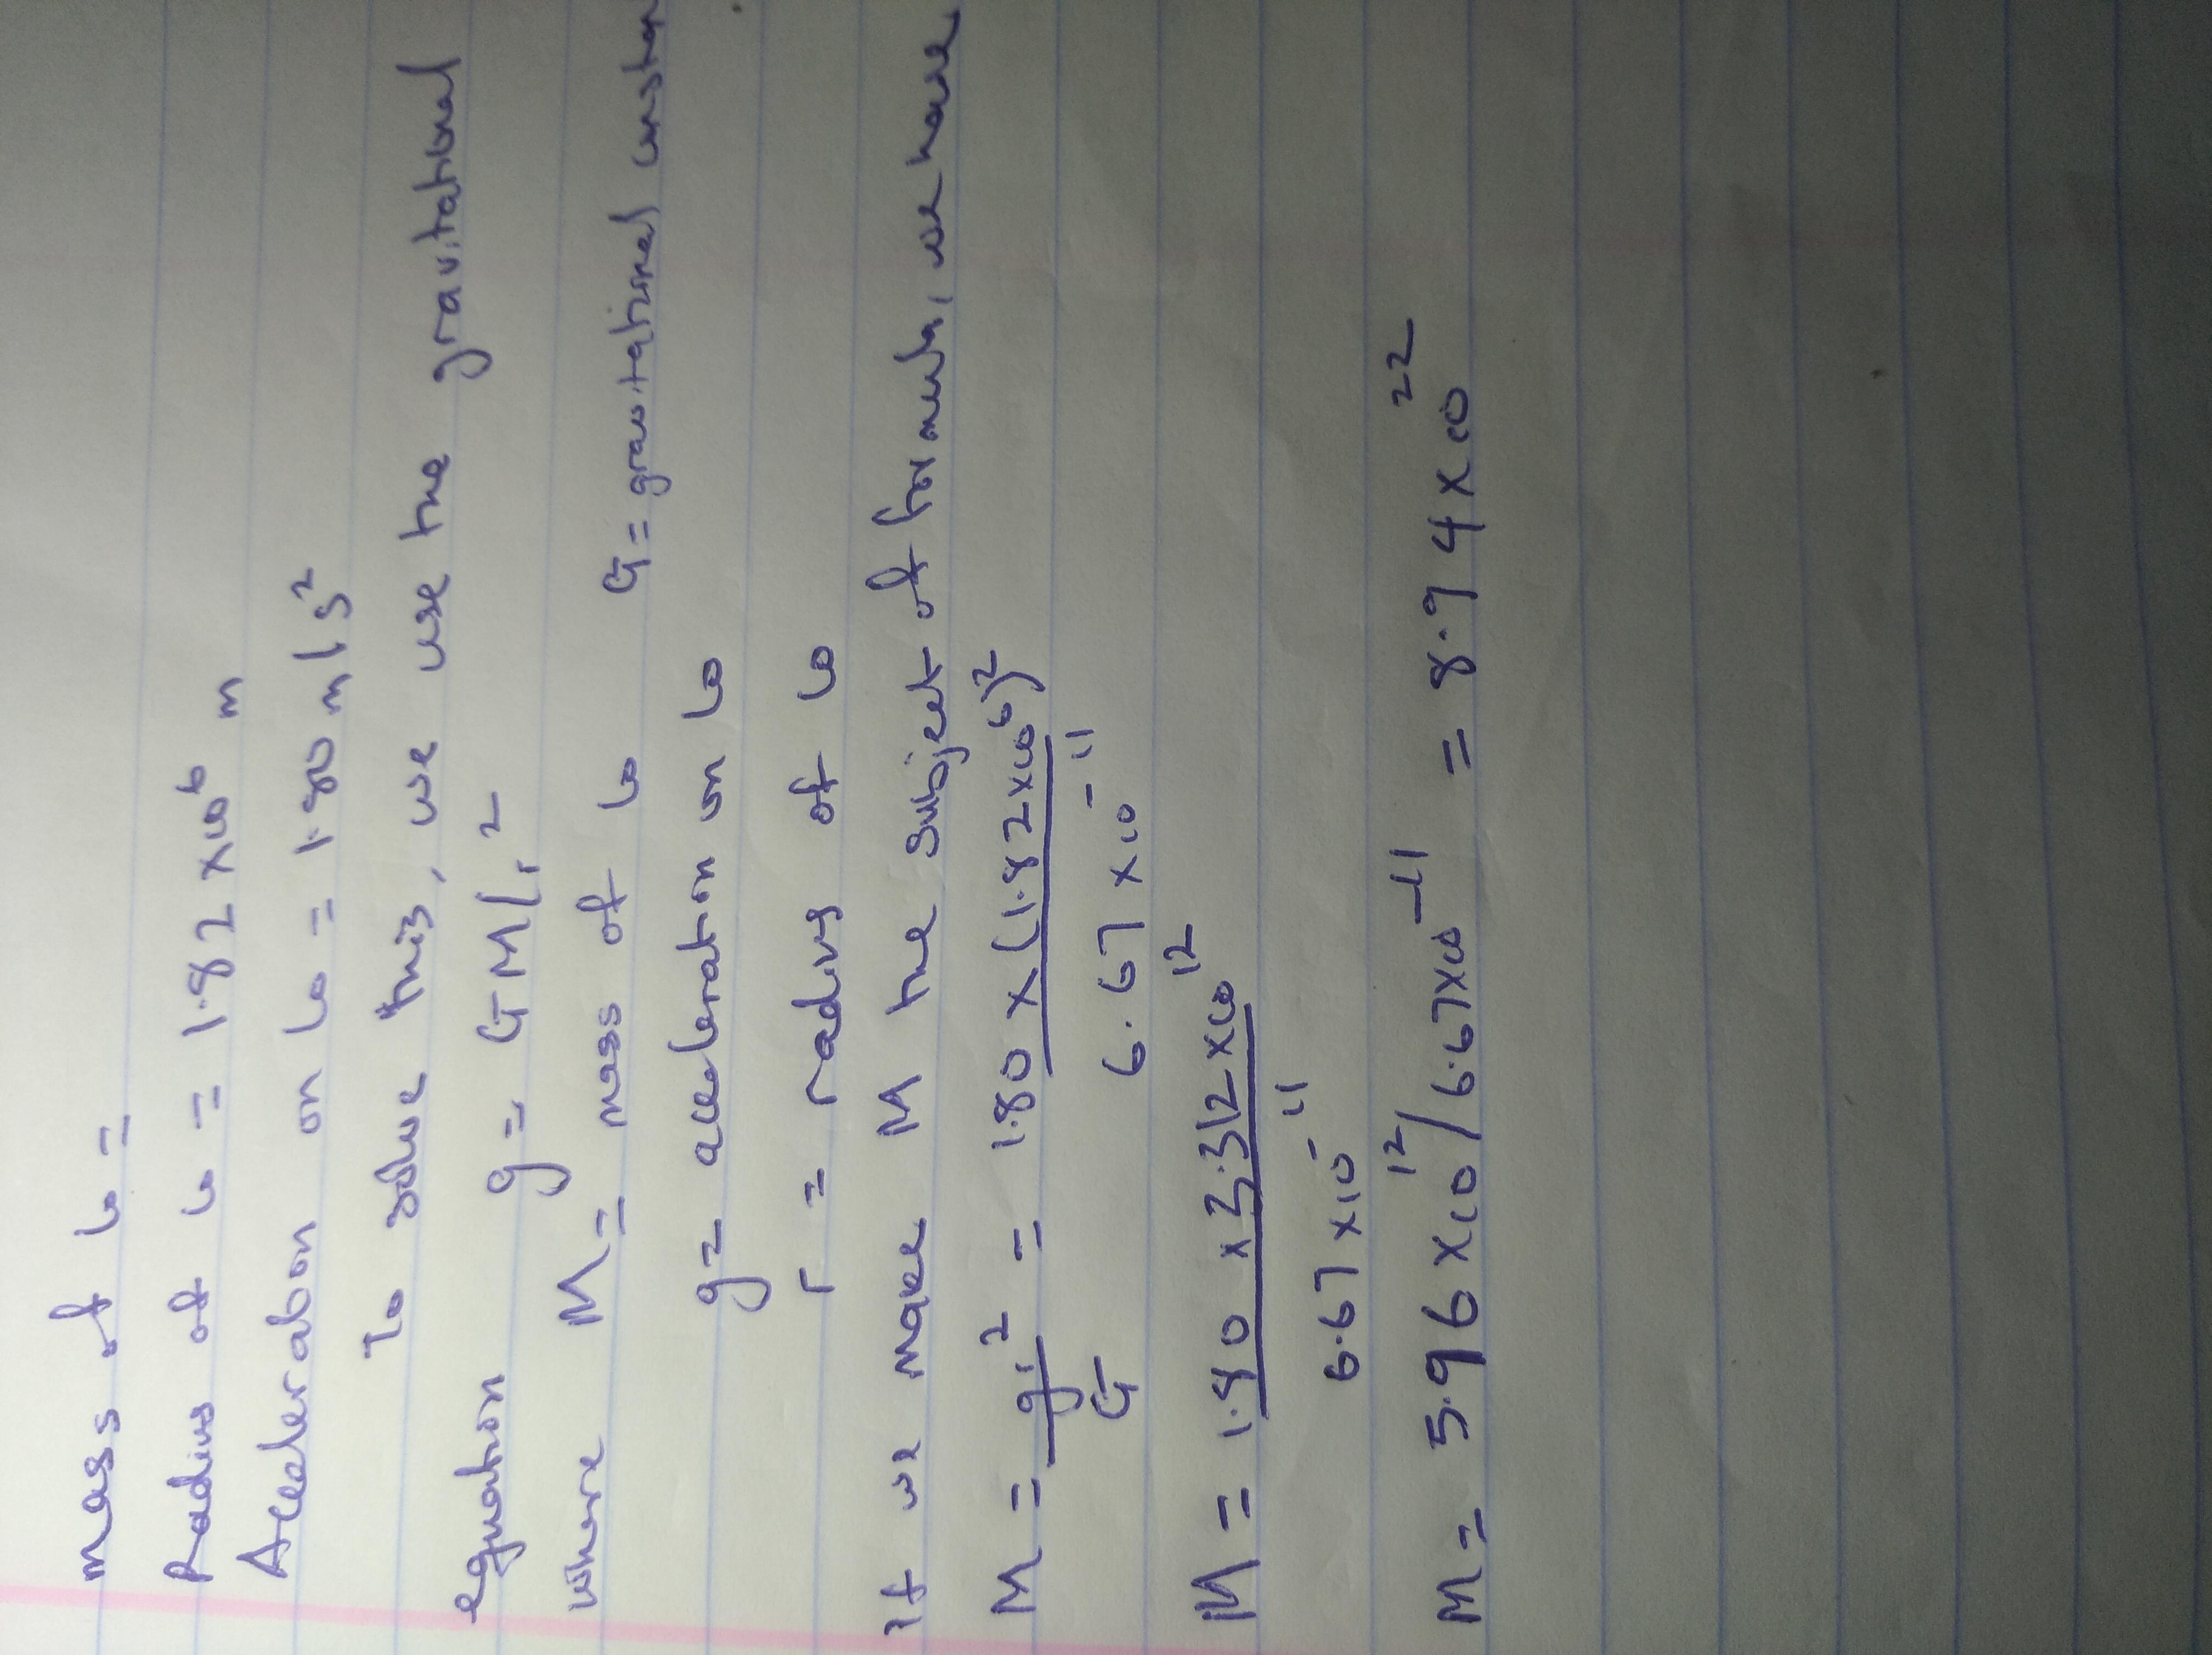 mass of Io =
Radius of Io = 1.82 x10⁶ m
Acceleration on Io = 1.80 m/s²
To solve this, we use the gravitational
equation g = GM/r²
where M = mass of Io G = gravitational constan
g = acceleration on Io
r = radius of Io
If we make M the subject of formula, we have
M = gr²/G = 1.80 x (1.82 x10⁶)²/6.67 x10⁻¹¹
M = 1.80 x 3.312 x10¹²/6.67 x10⁻¹¹
M = 5.96 x10¹²/6.67x10⁻¹¹ = 8.94 x10²²